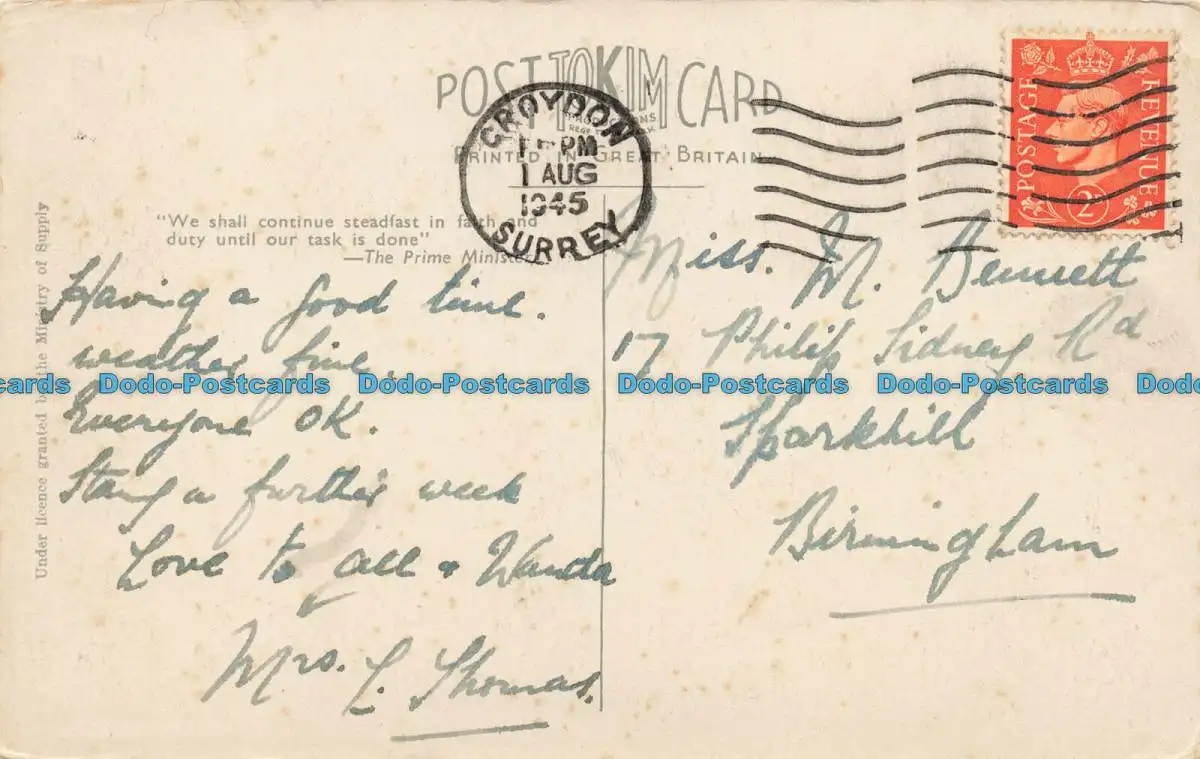 POST TOKIM CARD
PRINTED IN GREAT BRITAIN
CROYDON
PM
1 AUG
1945
SURREY
POSTAGE REVENUE
2D
Under licence granted by the Ministry of Supply
"We shall continue steadfast in faith and
duty until our task is done"
—The Prime Minister
Having a good time.
weather fine.
Everyone OK.
Stay a further week
Love to all & Wanda
Mrs. L. Thomas.
Miss. M. Bennett
17 Philip Sidney Rd
Sparkhill
Birmingham
cards Dodo-Postcards Dodo-Postcards Dodo-Postcards Dodo-Postcards Dodo-Postcards Dodo